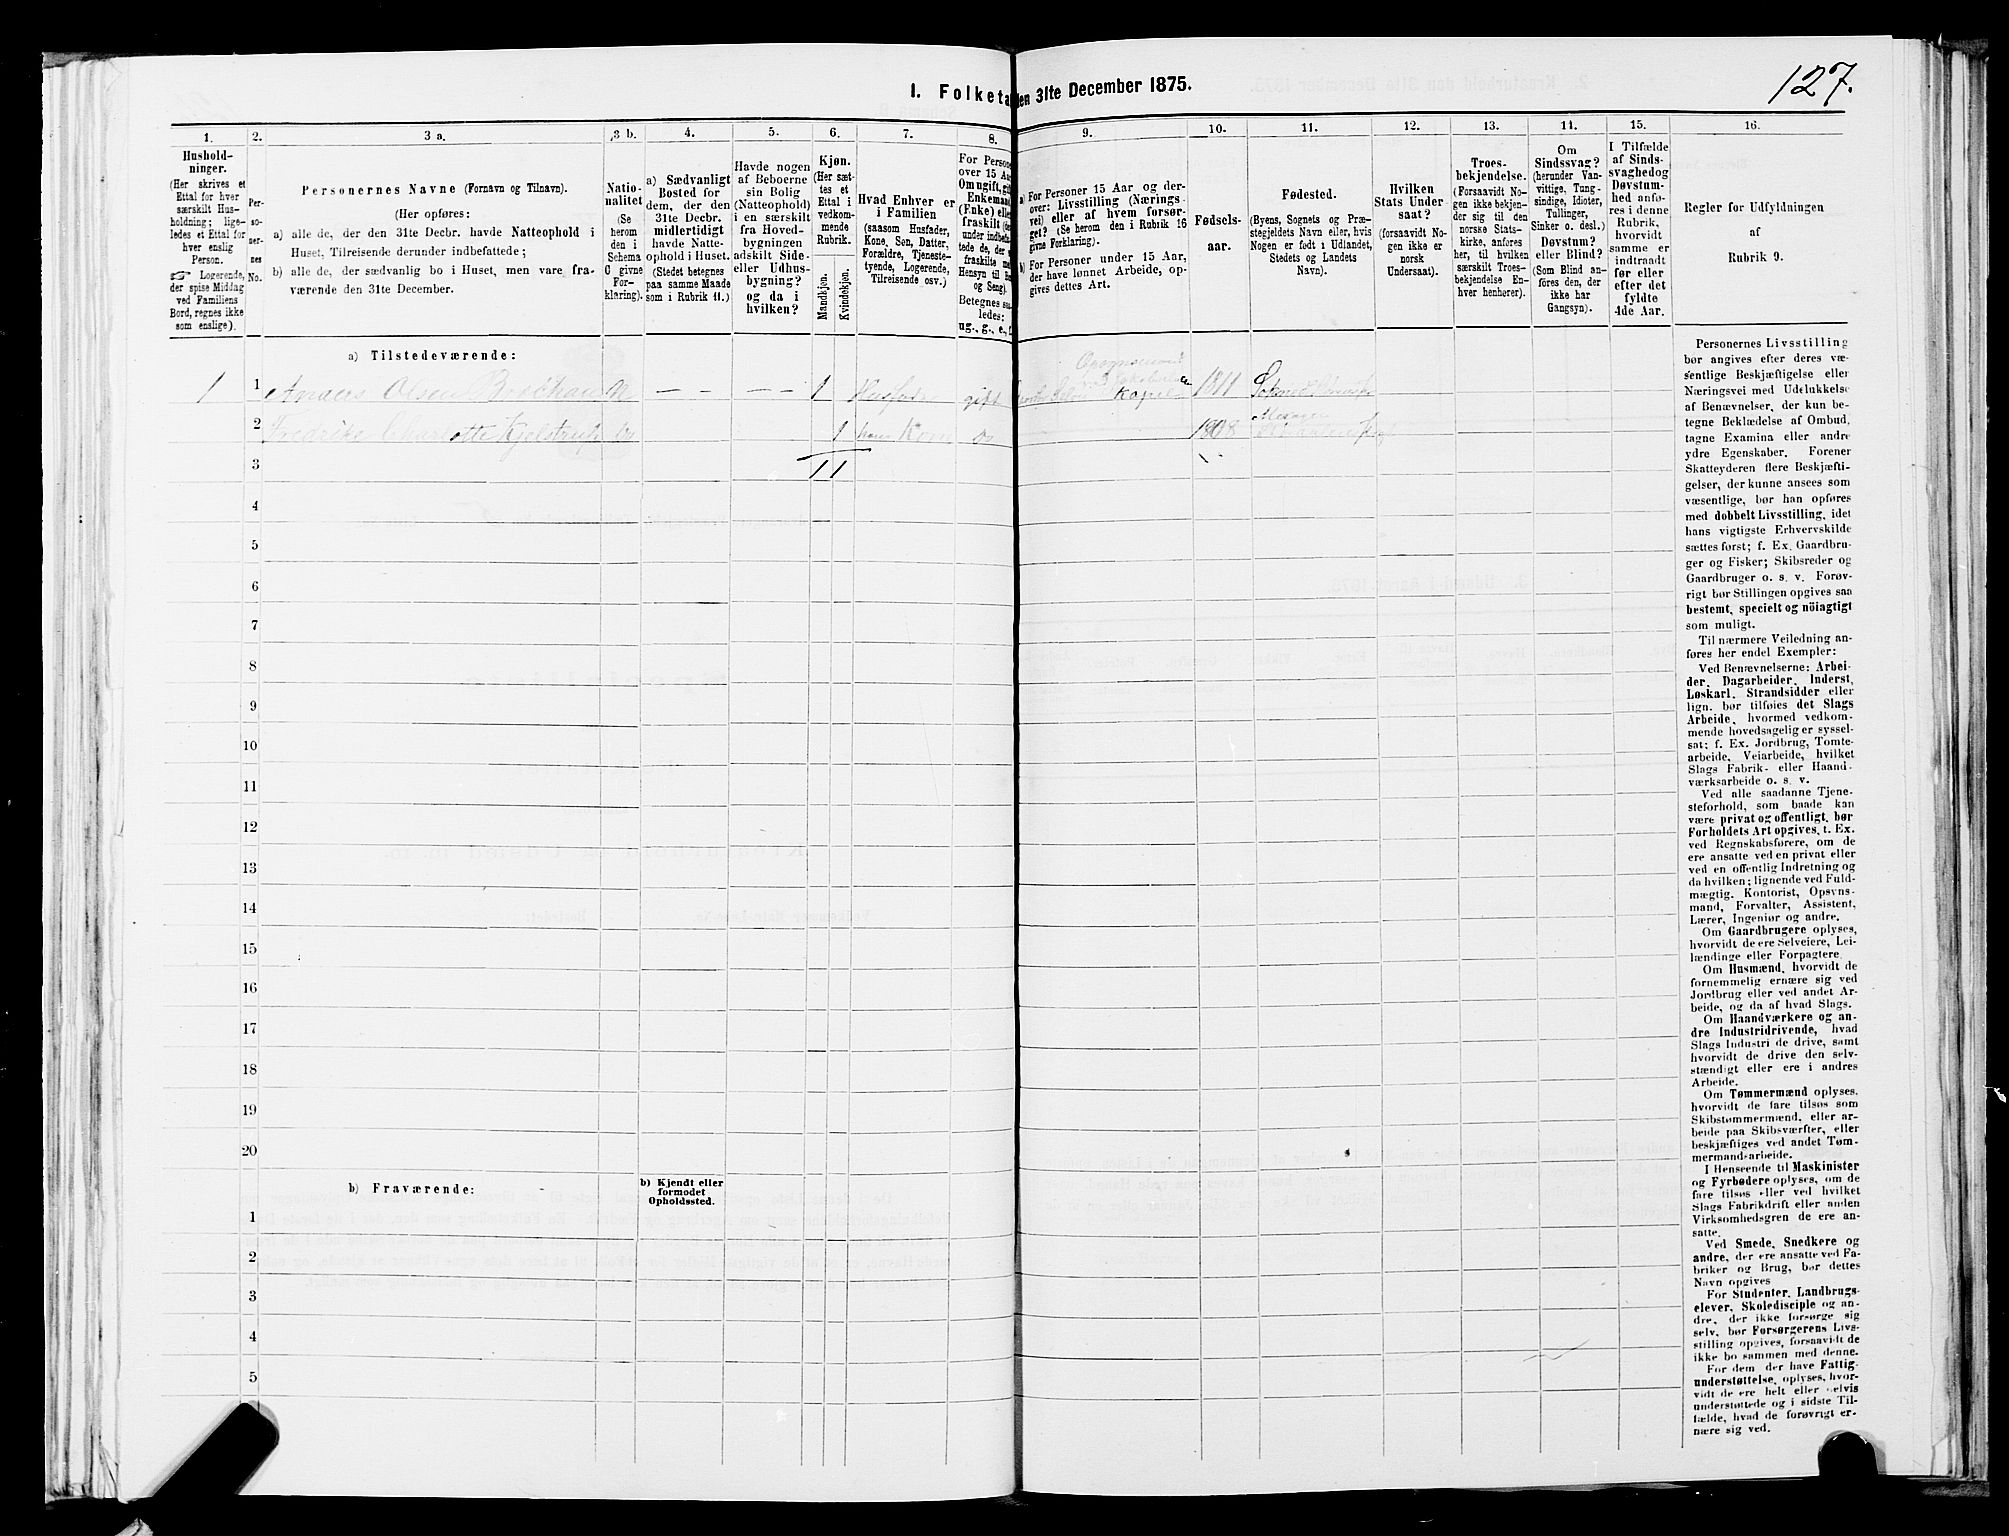 127.
I. Folketæ
den 31te December 1875.
1.
2.
3 a.
3 b.
4.
5.
6.
7.
8.
9.
10.
11.
12.
13.
14.
15.
16.
Hushold-
ninger.
(Her skrives et
Ettal for hver
særskilt Hus-
holdning; lige-
ledes et Ettal for
hver enslig
Person.
☞ Logerende,
der spise Middag
ved Familiens
Bord, regnes ikke
som enslige).
Per-
so-
ner-
nes
No.
Personernes Navne (Fornavn og Tilnavn).
(Her opføres:
a) alle de, der den 31te Decbr. havde Natteophold i
Huset, Tilreisende derunder indbefattede;
b) alle de, der sædvanlig bo i Huset, men vare fra-
værende den 31te December.
Natio-
nalitet
(Se
herom
den i
Schema
C givne
For-
klaring).
a) Sædvanligt
Bosted for
dem, der den
31te Decbr.
midlertidigt
havde Natte-
ophold i Huset.
(Stedet betegnes
paa samme Maade
som i Rubrik 11.)
Havde nogen
af Beboerne
sin Bolig
(Natteophold)
i en særskilt
fra Hoved-
bygningen
adskilt Side-
eller Udhus-
bygning?
og da i
hvilken?
Kjøn.
(Her sæt-
tes et
Ettal i
vedkom-
mende
Rubrik.
Mandkjøn.
Kvindekjøn.
Hvad Enhver er
i Familien
(saasom Husfader,
Kone, Søn, Datter,
Forældre, Tjeneste-
tyende, Logerende,
Tilreisende osv.)
For Persone
over 15 Aar
Om ugift, gif
Enkemand
(Enke) elle
fraskilt (her
under indbefat
tede de, der v
fraskilte me
Hensyn til Bo
og Seng).
Betegnes saa
ledes:
ug., g., e., f.
a) For Personer 15 Aar og der-
over: Livsstilling (Nærings-
vei) eller af hvem forsør-
get (Se herom den i Rubrik 16
givne Forklaring).
b) For Personer under 15 Aar,
der have lønnet Arbeide, op-
gives dettes Art.
Fødsels-
aar.
Fødested.
(Byens, Sognets og Præ-
stegjeldets Navn eller, hvis
Nogen er født i Udlandet,
Stedets og Landets
Navn).
Hvilken
Stats Under
saat?
(forsaavidt No-
gen ikke er
norsk
Undersaat).
Troes-
bekjendelse.
(Forsaavidt No-
gen ikke bekjen-
der sig til den
norske Stats-
kirke, anføres
her, til hvilken
særskilt Troes-
bekjendelse En-
hver henhører).
Om
Sindssvag?
(herunder Van-
vittige, Tung-
sindige, Idioter,
Tullinger,
Sinker o. desl.)
Døvstum?
eller Blind?
(Som Blind an-
føres den, der
ikke har
Gangsyn).
I Tilfælde
af Sinds-
svaghed og
Døvstum-
hed anfø-
res i denne
Rubrik,
hvorvidt
samme er
indtraadt
før eller
efter det
fyldte
4de Aar.
Regler for Udfyldningen
af
Rubrik 9.
a) Tilstedeværende:
1 1 Anders Olsen N — — — — 1 Husfader gift 1811
2 Fredrikke Charlotte Do 1 hans Kone Do 1808
3 1 1
4
5
6
7
8
9
10
11
12
13
14
15
16
17
18
19
20
b) Fraværende:
b) Kjendt eller
formodet
Opholdssted.
1
2
3
4
5
Personernes Livsstilling
bør angives efter deres væ-
sentlige Beskjæftigelse eller
Næringsvei med Udelukkelse
af Benævnelser, der kun be-
tegne Beklædelse af Ombud,
tagne Examina eller andre
ydre Egenskaber. Forener
Skatteyderen flere Beskjæfti-
gelser, der kunne ansees som
væsentlige, bør han opføres
med dobbelt Livsstilling, idet
hans vigtigste Erhvervskilde
sættes først; f. Ex. Gaardbru-
ger og Fisker; Skibsreder og
Gaardbruger o. s. v. Forøv-
rigt bør Stillingen opgives saa
bestemt, specielt og nöiagtigt
som muligt.
Til nærmere Veiledning an-
føres her endel Exempler:
Ved Benævnelserne: Arbei-
der, Dagarbeider, Inderst,
Løskarl, Strandsidder eller
lign. bør tilføies det Slags
Arbeide, hvormed vedkom-
mende hovedsagelig er syssel-
sat; f. Ex. Jordbrug, Tomte-
arbeide, Veiarbeide, hvilket
Slags Fabrik- eller Haand-
værksarbeide o. s. v.
Ved alle saadanne Tjene-
steforhold, som baade kan
være privat og offentligt, bør
Forholdets Art opgives, t. Ex.
ved Regnskabsførere, om de
ere ansatte ved en privat eller
ved en offentlig Indretning og
da hvilken; lignende ved Fuld-
mægtig, Kontorist, Opsyns-
mand, Forvalter, Assistent,
Lærer, Ingeniør og andre.
Om Gaardbrugere oplyses,
hvorvidt de ere Selveiere, Lei-
lændinge eller Forpagtere.
Om Husmænd, hvorvidt de
fornemmelig ernære sig ved
Jordbrug eller ved andet Ar-
beide, og da af hvad Slags.
Om Haandværkere og an-
dre Industridrivende, hvad
Slags Industri de drive, samt
hvorvidt de drive den selv-
stændigt eller ere i andres
Arbeide.
Om Tømmermænd oplyses,
hvorvidt de fare tilsøs som
Skibstømmermænd, eller ar-
beide paa Skibsværfter, eller
beskjæftiges ved andet Tøm-
mermandsarbeide.
I Henseende til Maskinister
og Fyrbødere oplyses, om de
fare tilsøs eller ved hvilket
Slags Fabrikdrift eller anden
Virksomhedsgren de ere an-
satte.
Ved Smede, Snedkere og
andre, der ere ansatte ved Fa-
briker og Brug, bør dettes
Navn opgives
For Studenter, Landbrugs-
elever, Skoledisciple og an-
dre, der ikke forsørge sig
selv, bør Forsørgerens Livs-
stilling opgives, forsaavidt de
ikke bo sammen med denne.
For dem, der have Fattig-
understøttelse, oplyses, hvor-
vidt de ere helt eller delvis
understøttede og i sidste Til-
fælde, hvad de forøvrigt er-
nære sig ved.